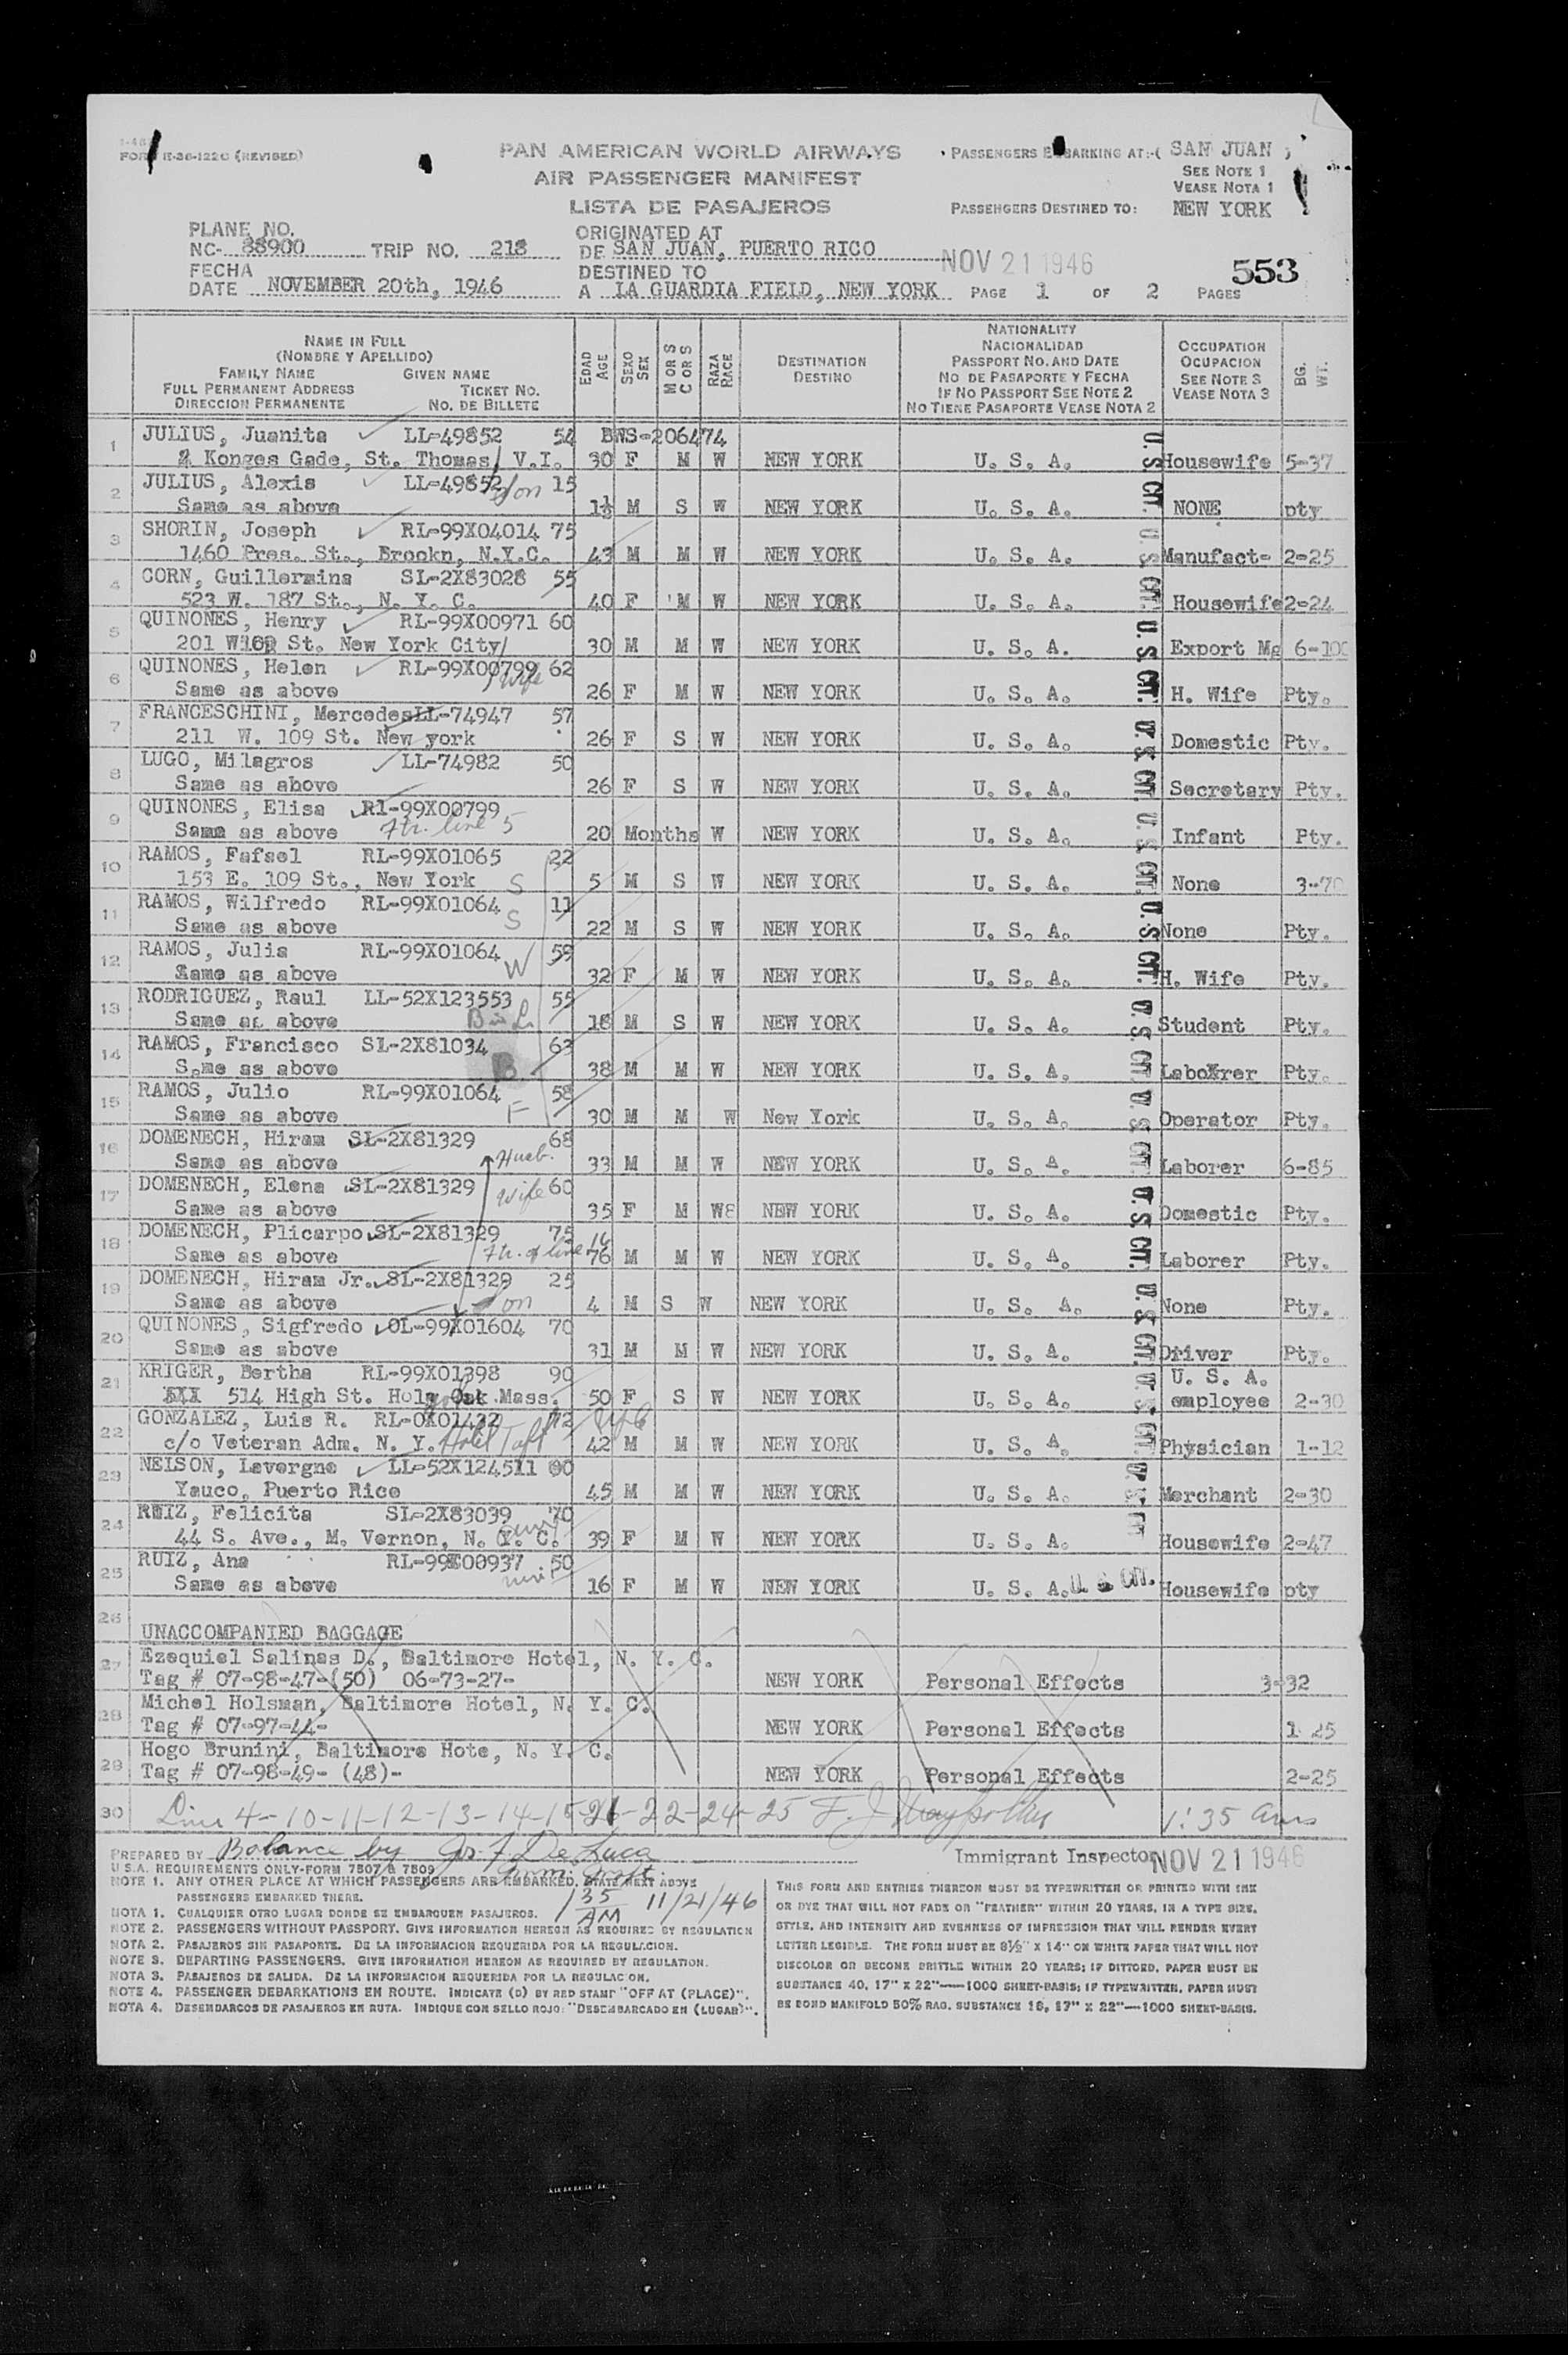 FORM II-36-122C (REVISED)
PAN AMERICAN WORLD AIRWAYS
AIR PASSENGER MANIFEST
LISTA DE PASAJEROS
PASSENGERS EMBARKING AT:-( SAN JUAN )
SEE NOTE 1
VEASE NOTA 1
PASSENGERS DESTINED TO: NEW YORK
PLANE NO.
NC- 88900 TRIP NO. 218
FECHA
DATE NOVEMBER 20th, 1946
ORIGINATED AT
DE SAN JUAN, PUERTO RICO
DESTINED TO
A LA GUARDIA FIELD, NEW YORK
NOV 21 1946
PAGE 1 OF 2 PAGES
553
NAME IN FULL
(NOMBRE Y APELLIDO)
FAMILY NAME GIVEN NAME
FULL PERMANENT ADDRESS TICKET NO.
DIRECCION PERMANENTE NO. DE BILLETE
EDAD AGE
SEXO SEX
M OR S C OR S
RAZA RACE
DESTINATION
DESTINO
NATIONALITY
NACIONALIDAD
PASSPORT NO. AND DATE
NO DE PASAPORTE Y FECHA
IF NO PASSPORT SEE NOTE 2
NO TIENE PASAPORTE VEASE NOTA 2
OCCUPATION
OCUPACION
SEE NOTE 3
VEASE NOTA 3
BG. WT.
1 JULIUS, Juanita LL-49852 54 BWS-206474
2 Konges Gade, St. Thomas, V.I. 30 F M W NEW YORK U. S. A. Housewife 5-37
2 JULIUS, Alexis LL-49852 son 15
Same as above 1½ M S W NEW YORK U. S. A. NONE pty
3 SHORIN, Joseph RL-99X04014 75
1460 Pres. St., Brookn, N.Y.C. 43 M M W NEW YORK U. S. A. Manufact- 2-25
4 CORN, Guillermina SL-2X83028 55
523 W. 187 St., N. Y. C. 40 F M W NEW YORK U. S. A. Housewife 2-24
5 QUINONES, Henry RL-99X00971 60
201 St. New York City 30 M M W NEW YORK U. S. A. Export Mg 6-100
6 QUINONES, Helen RL-99X00799 wife 62
Same as above 26 F M W NEW YORK U. S. A. H. Wife Pty.
7 FRANCESCHINI, Mercedes LL-74947 57
211 W. 109 St. New york 26 F S W NEW YORK U. S. A. Domestic Pty.
8 LUGO, Milagros LL-74982 50
Same as above 26 F S W NEW YORK U. S. A. Secretary Pty.
9 QUINONES, Elisa Rl-99X00799
Same as above Ftr. line 5 20 Months W NEW YORK U. S. A. Infant Pty.
10 RAMOS, Fafael RL-99X01065 22
153 E. 109 St., New York S 5 M S W NEW YORK U. S. A. None 3-70
11 RAMOS, Wilfredo RL-99X01064 11
Same as above S 22 M S W NEW YORK U. S. A. None Pty.
12 RAMOS, Julia RL-99X01064 59
Same as above W 32 F M W NEW YORK U. S. A. H. Wife Pty.
13 RODRIGUEZ, Raul LL-52X123553 55
Same as above B in L 18 M S W NEW YORK U. S. A. Student Pty.
14 RAMOS, Francisco SL-2X81034 63
Same as above B 38 M M W NEW YORK U. S. A. LaboXrer Pty.
15 RAMOS, Julio RL-99X01064 58
Same as above F 30 M M W New York U. S. A. Operator Pty.
16 DOMENECH, Hiram SL-2X81329 68
Same as above Husb. 33 M M W NEW YORK U. S. A. Laborer 6-85
17 DOMENECH, Elena SL-2X81329 wife 60
Same as above 35 F M W NEW YORK U. S. A. Domestic Pty.
18 DOMENECH, Plicarpo SL-2X81329 75
Same as above Ftr. of line 16 76 M M W NEW YORK U. S. A. Laborer Pty.
19 DOMENECH, Hiram Jr. SL-2X81329 25
Same as above son 4 M S W NEW YORK U. S. A. None Pty.
20 QUINONES, Sigfredo OL-99X01604 70
Same as above 31 M M W NEW YORK U. S. A. Driver Pty.
21 KRIGER, Bertha RL-99X01398 90 U. S. A.
514 High St. Holy Oak Mass. 50 F S W NEW YORK U. S. A. employee 2-30
22 GONZALEZ, Luis R. RL-0X01432 72
c/o Veteran Adm. N. Y. Hotel Taft NYC 42 M M W NEW YORK U. S. A. Physician 1-12
23 NEISON, Lavergne LL-52X124511 80
Yauco, Puerto Rico 45 M M W NEW YORK U. S. A. Merchant 2-30
24 RUIZ, Felicita SL-2X83039 70
44 S. Ave., M. Vernon, N. Y. C. 39 F M W NEW YORK U. S. A. Housewife 2-47
25 RUIZ, Ana RL-99X00937 50
Same as above 16 F M W NEW YORK U. S. A. U. S. CIT. Housewife pty
26 UNACCOMPANIED BAGGAGE
27 Ezequiel Salinas D., Baltimore Hotel, N. Y. C.
Tag # 07-98-47-(50) 06-73-27- NEW YORK Personal Effects 3-32
28 Michel Holsman, Baltimore Hotel, N. Y. C.
Tag # 07-97-44- NEW YORK Personal Effects 1 25
29 Hogo Brunini, Baltimore Hote, N. Y. C.
Tag # 07-98-49- (48)- NEW YORK Personal Effects 2-25
30 Line 4-10-11-12-13-14-15-21-22-24-25 1:35 am
PREPARED BY Balance by Jos. F. De Luca
Imm. Inspt.
1 35 AM 11/21/46
Immigrant Inspector NOV 21 1946
U.S.A. REQUIREMENTS ONLY-FORM 7507 & 7509
NOTE 1. ANY OTHER PLACE AT WHICH PASSENGERS ARE EMBARKED, STATE NEXT ABOVE
PASSENGERS EMBARKED THERE.
NOTA 1. CUALQUIER OTRO LUGAR DONDE SE EMBARQUEN PASAJEROS.
NOTE 2. PASSENGERS WITHOUT PASSPORT. GIVE INFORMATION HEREON AS REQUIRED BY REGULATION
NOTA 2. PASAJEROS SIN PASAPORTE. DE LA INFORMACION REQUERIDA POR LA REGULACION.
NOTE 3. DEPARTING PASSENGERS. GIVE INFORMATION HEREON AS REQUIRED BY REGULATION.
NOTA 3. PASAJEROS DE SALIDA. DE LA INFORMACION REQUERIDA POR LA REGULACION.
NOTE 4. PASSENGER DEBARKATIONS EN ROUTE. INDICATE (D) BY RED STAMP "OFF AT (PLACE)".
NOTA 4. DESEMBARCOS DE PASAJEROS EN RUTA. INDIQUE CON SELLO ROJO: "DESEMBARCADO EN (LUGAR)".
THIS FORM AND ENTRIES THEREON MUST BE TYPEWRITTEN OR PRINTED WITH INK
OR DYE THAT WILL NOT FADE OR "FEATHER" WITHIN 20 YEARS, IN A TYPE SIZE,
STYLE, AND INTENSITY AND EVENNESS OF IMPRESSION THAT WILL RENDER EVERY
LETTER LEGIBLE. THE FORM MUST BE 8½" X 14" ON WHITE PAPER THAT WILL NOT
DISCOLOR OR BECOME BRITTLE WITHIN 20 YEARS; IF DITTOED, PAPER MUST BE
SUBSTANCE 40, 17" X 22"—1000 SHEET-BASIS; IF TYPEWRITTEN, PAPER MUST
BE BOND MANIFOLD 50% RAG, SUBSTANCE 16, 17" X 22"—1000 SHEET-BASIS.